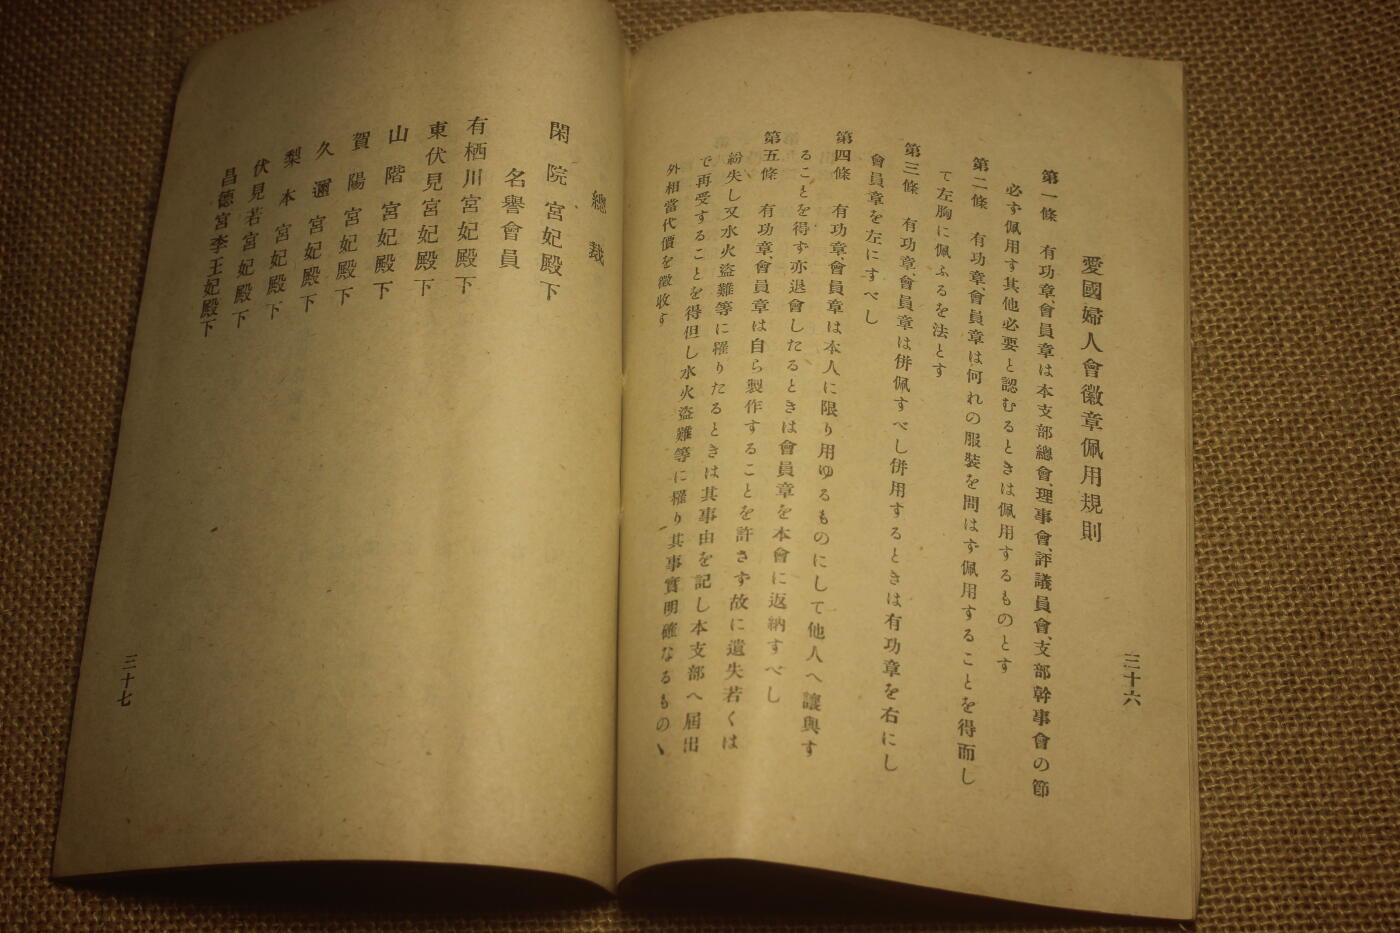 愛國婦人會徽章佩用規則
第一條　有功章、會員章は本支部總會、理事會、評議員會、支部幹事會の節
必ず佩用す其他必要と認むるときは佩用するものとす
第二條　有功章、會員章は何れの服裝を問はず佩用することを得而し
て左胸に佩ふるを法とす
第三條　有功章、會員章は併佩すべし併用するときは有功章を右にし
會員章を左にすべし
第四條　有功章、會員章は本人に限り用ゆるものにして他人へ讓與す
ることを得ず亦退會したるときは會員章を本會に返納すべし
第五條　有功章、會員章は自ら製作することを許さず故に遺失若くは
紛失し又水火盜難等に罹りたるときは其事由を記し本支部へ屆出
で再受することを得但し水火盜難等に罹り其事實明確なるものゝ
外相當代價を徵收す
三十六
總裁
閑院宮妃殿下
名譽會員
有栖川宮妃殿下
東伏見宮妃殿下
山階宮妃殿下
賀陽宮妃殿下
久邇宮妃殿下
梨本宮妃殿下
伏見若宮妃殿下
昌德宮李王妃殿下
三十七